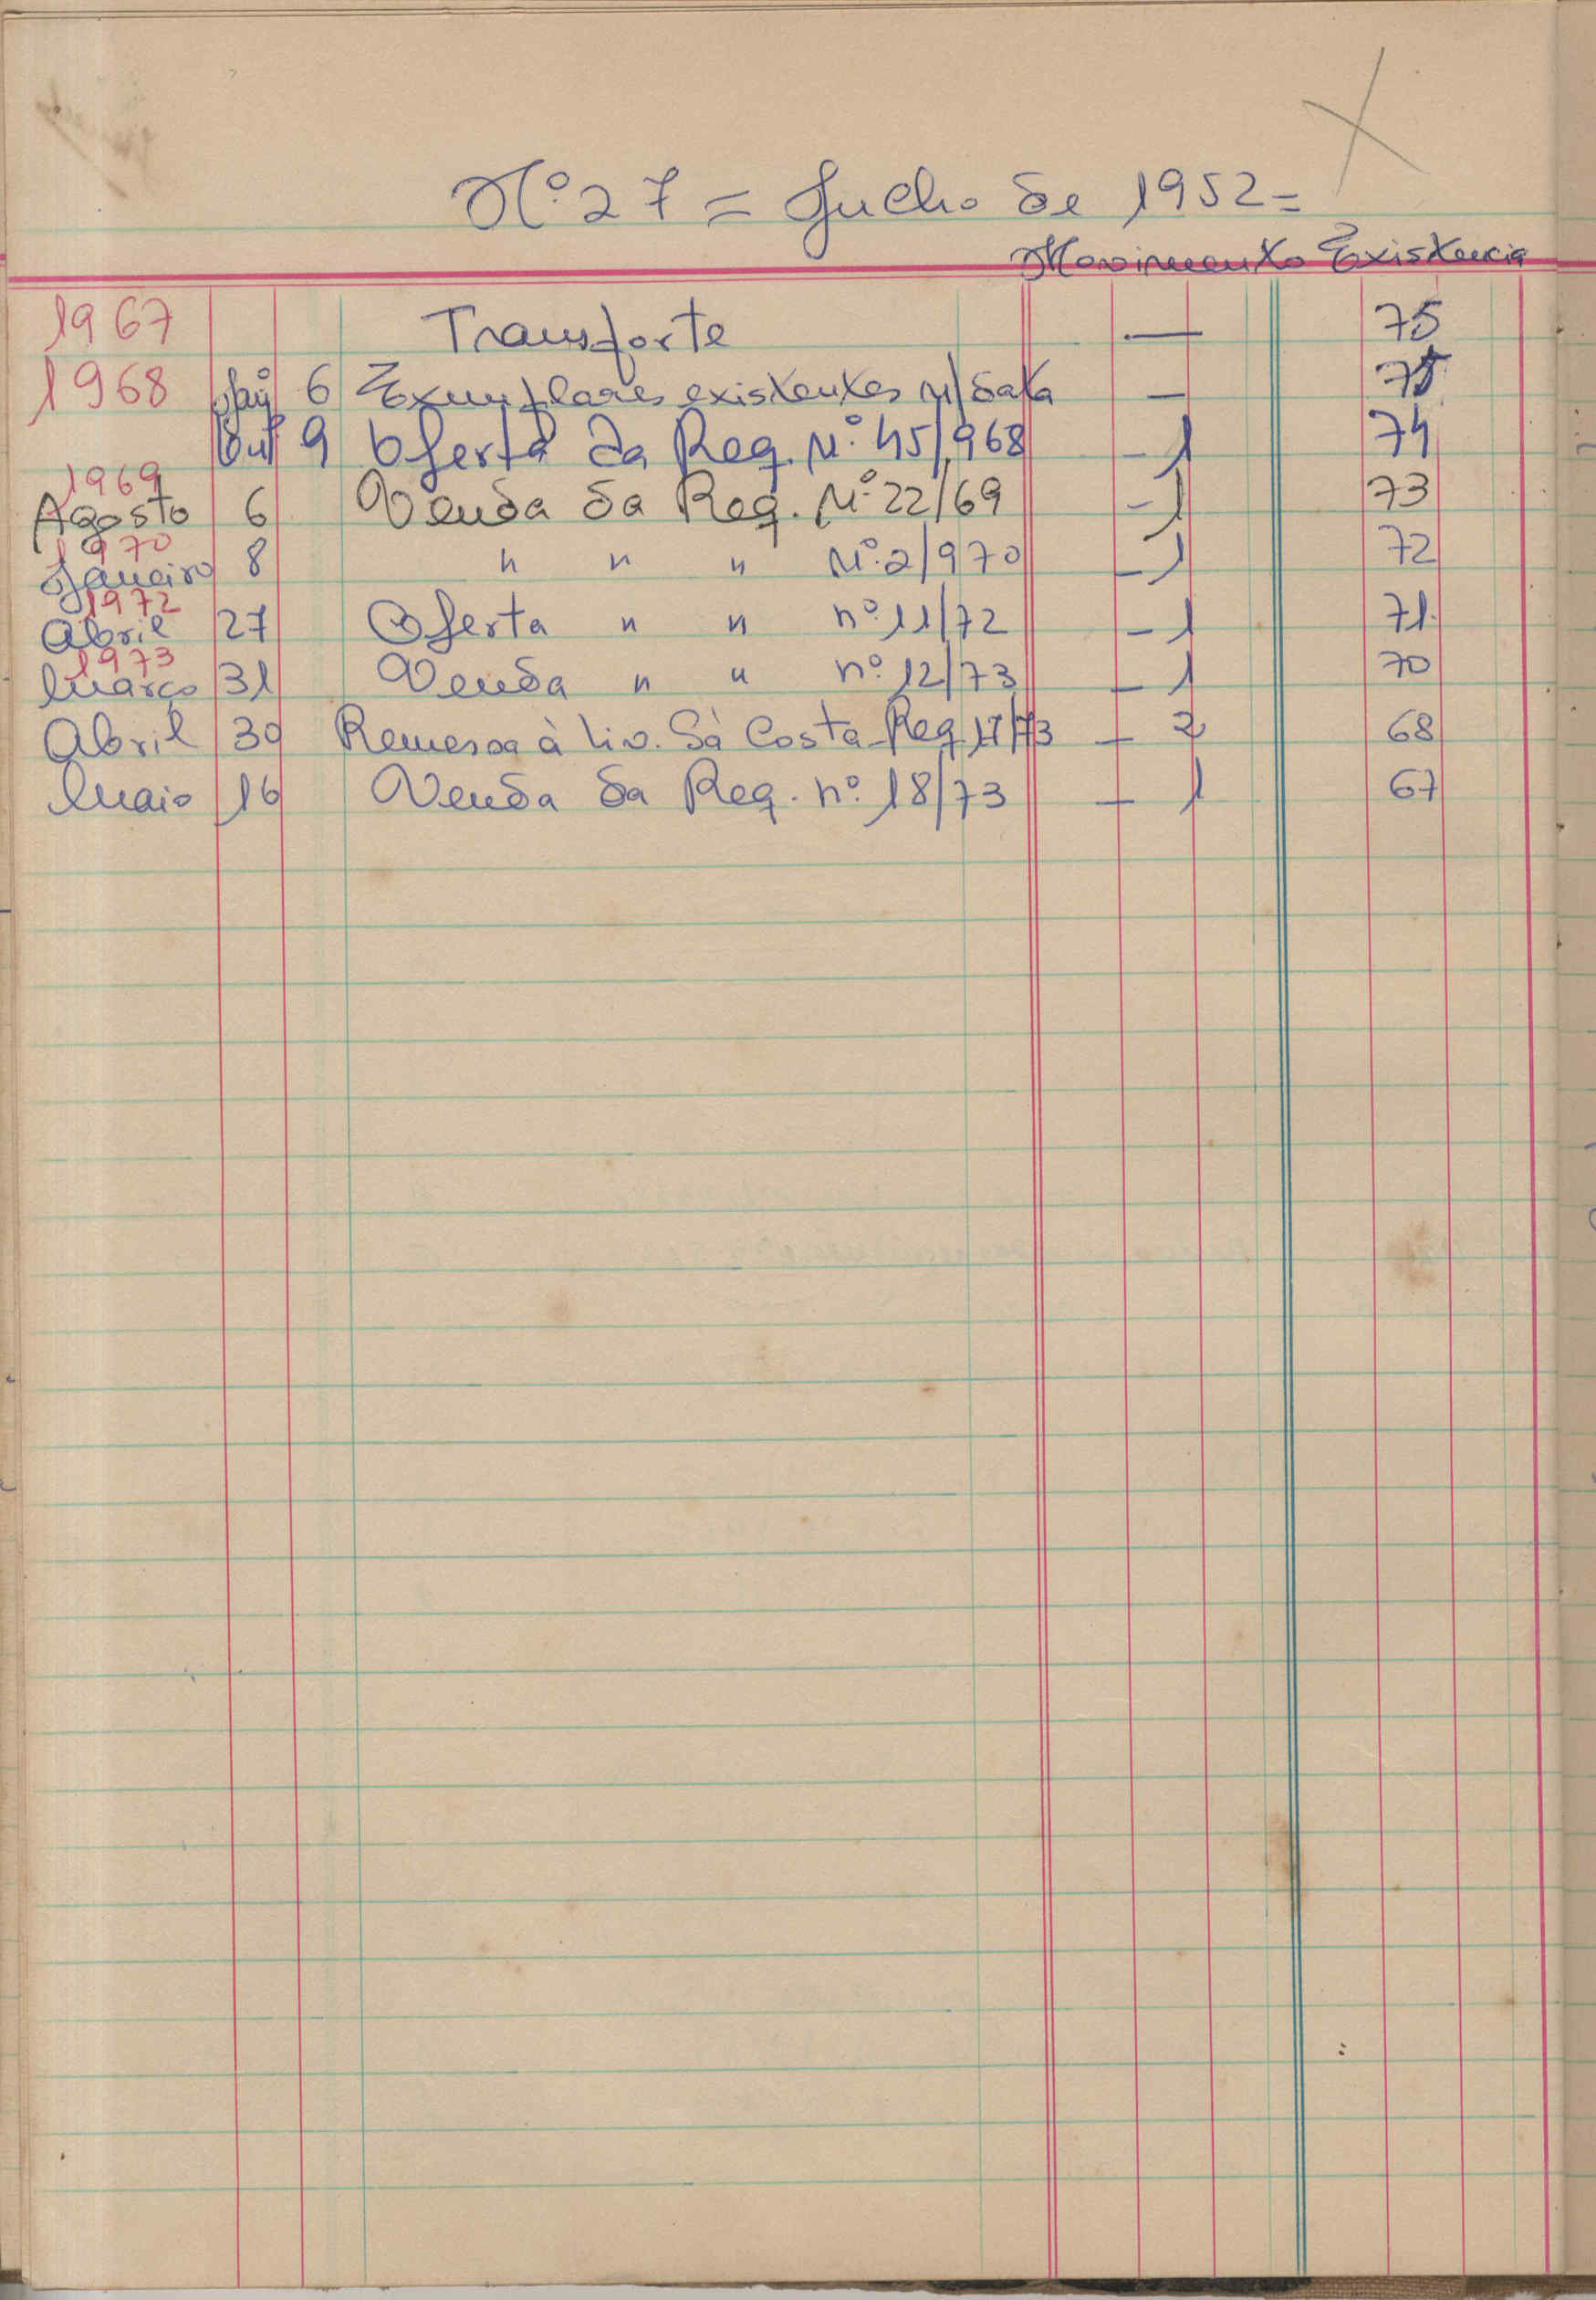 Nº 27 = Julho de 1952 =
Movimento Existencia
1967 Transporte — 75
1968 Janº 6 Exemplares existentes n/data — 75
Outº 9 Oferta da Req. Nº 45/968 - 1 74
1969
Agosto 6 Venda da Req. Nº 22/69 - 1 73
1970
Janeiro 8 " " " Nº 2/970 - 1 72
1972
Abril 27 Oferta " " nº 11/72 - 1 71
1973
Março 31 Venda " " nº 12/73 - 1 70
Abril 30 Remessa à Liv. Sá Costa Req 17/73 - 2 68
Maio 16 Venda da Req. nº 18/73 - 1 67